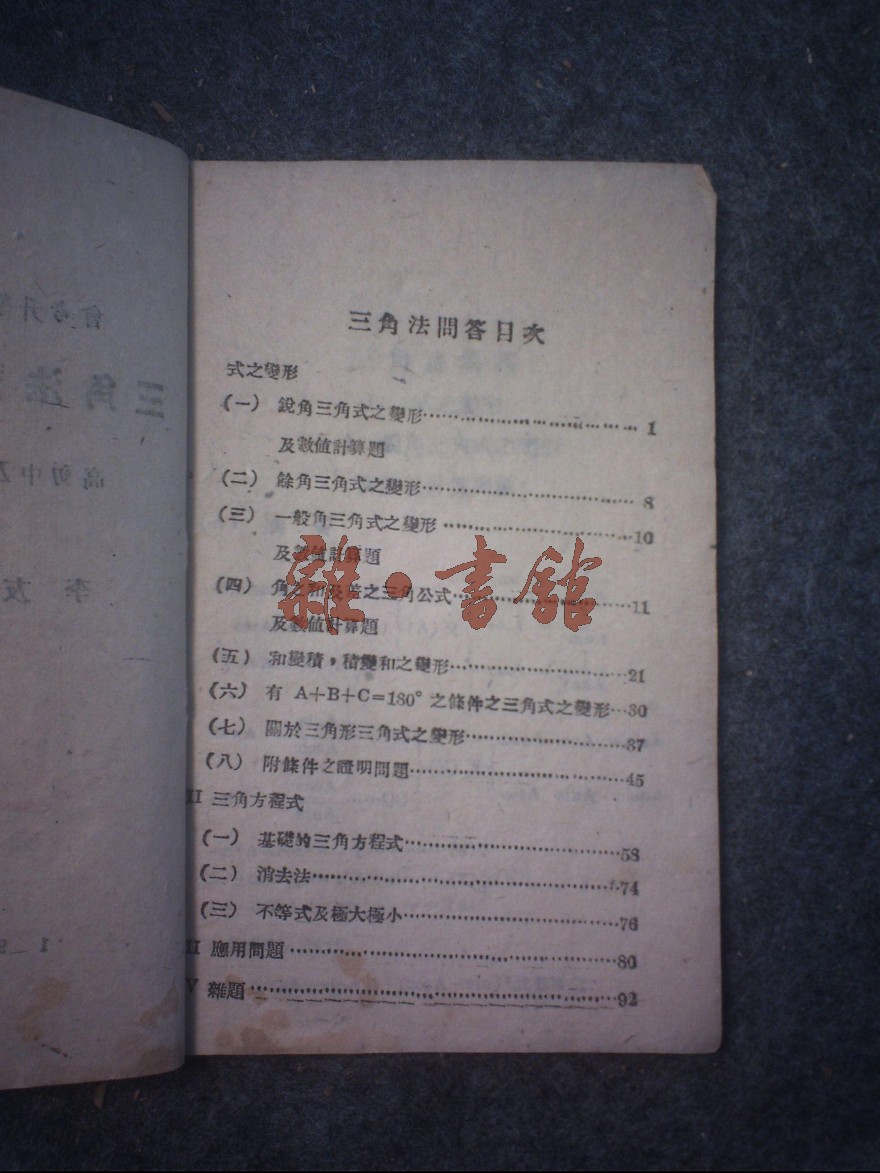 三角法問答目次
式之變形
(一) 銳角三角式之變形……………………………… 1
及數値計算題
(二) 餘角三角式之變形……………………………… 8
(三) 一般角三角式之變形……………………………10
及數値計算題
(四) 角之和及差之三角公式…………………………11
及數値計算題
(五) 和變積，積變和之變形…………………………21
(六) 有 A+B+C=180° 之條件之三角式之變形…30
(七) 關於三角形三角式之變形………………………37
(八) 附條件之證明問題………………………………45
II 三角方程式
(一) 基礎的三角方程式………………………………58
(二) 消去法……………………………………………74
(三) 不等式及極大極小………………………………76
II 應用問題……………………………………………80
V 雜題…………………………………………………92
雜·書館
三角法
李友